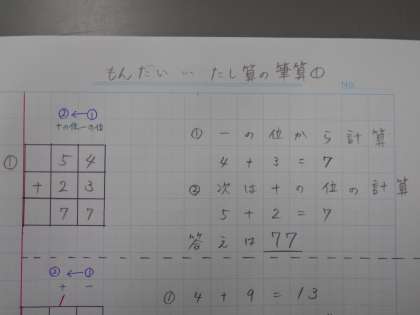 もんだい い たし算の筆算①
NO.
② ← ①
十の位 一の位
①
5 4
+ 2 3
7 7
① 一の位から計算
4 + 3 = 7
② 次は十の位の計算
5 + 2 = 7
答えは 77
② ← ①
十 一
1
① 4 + 9 = 13